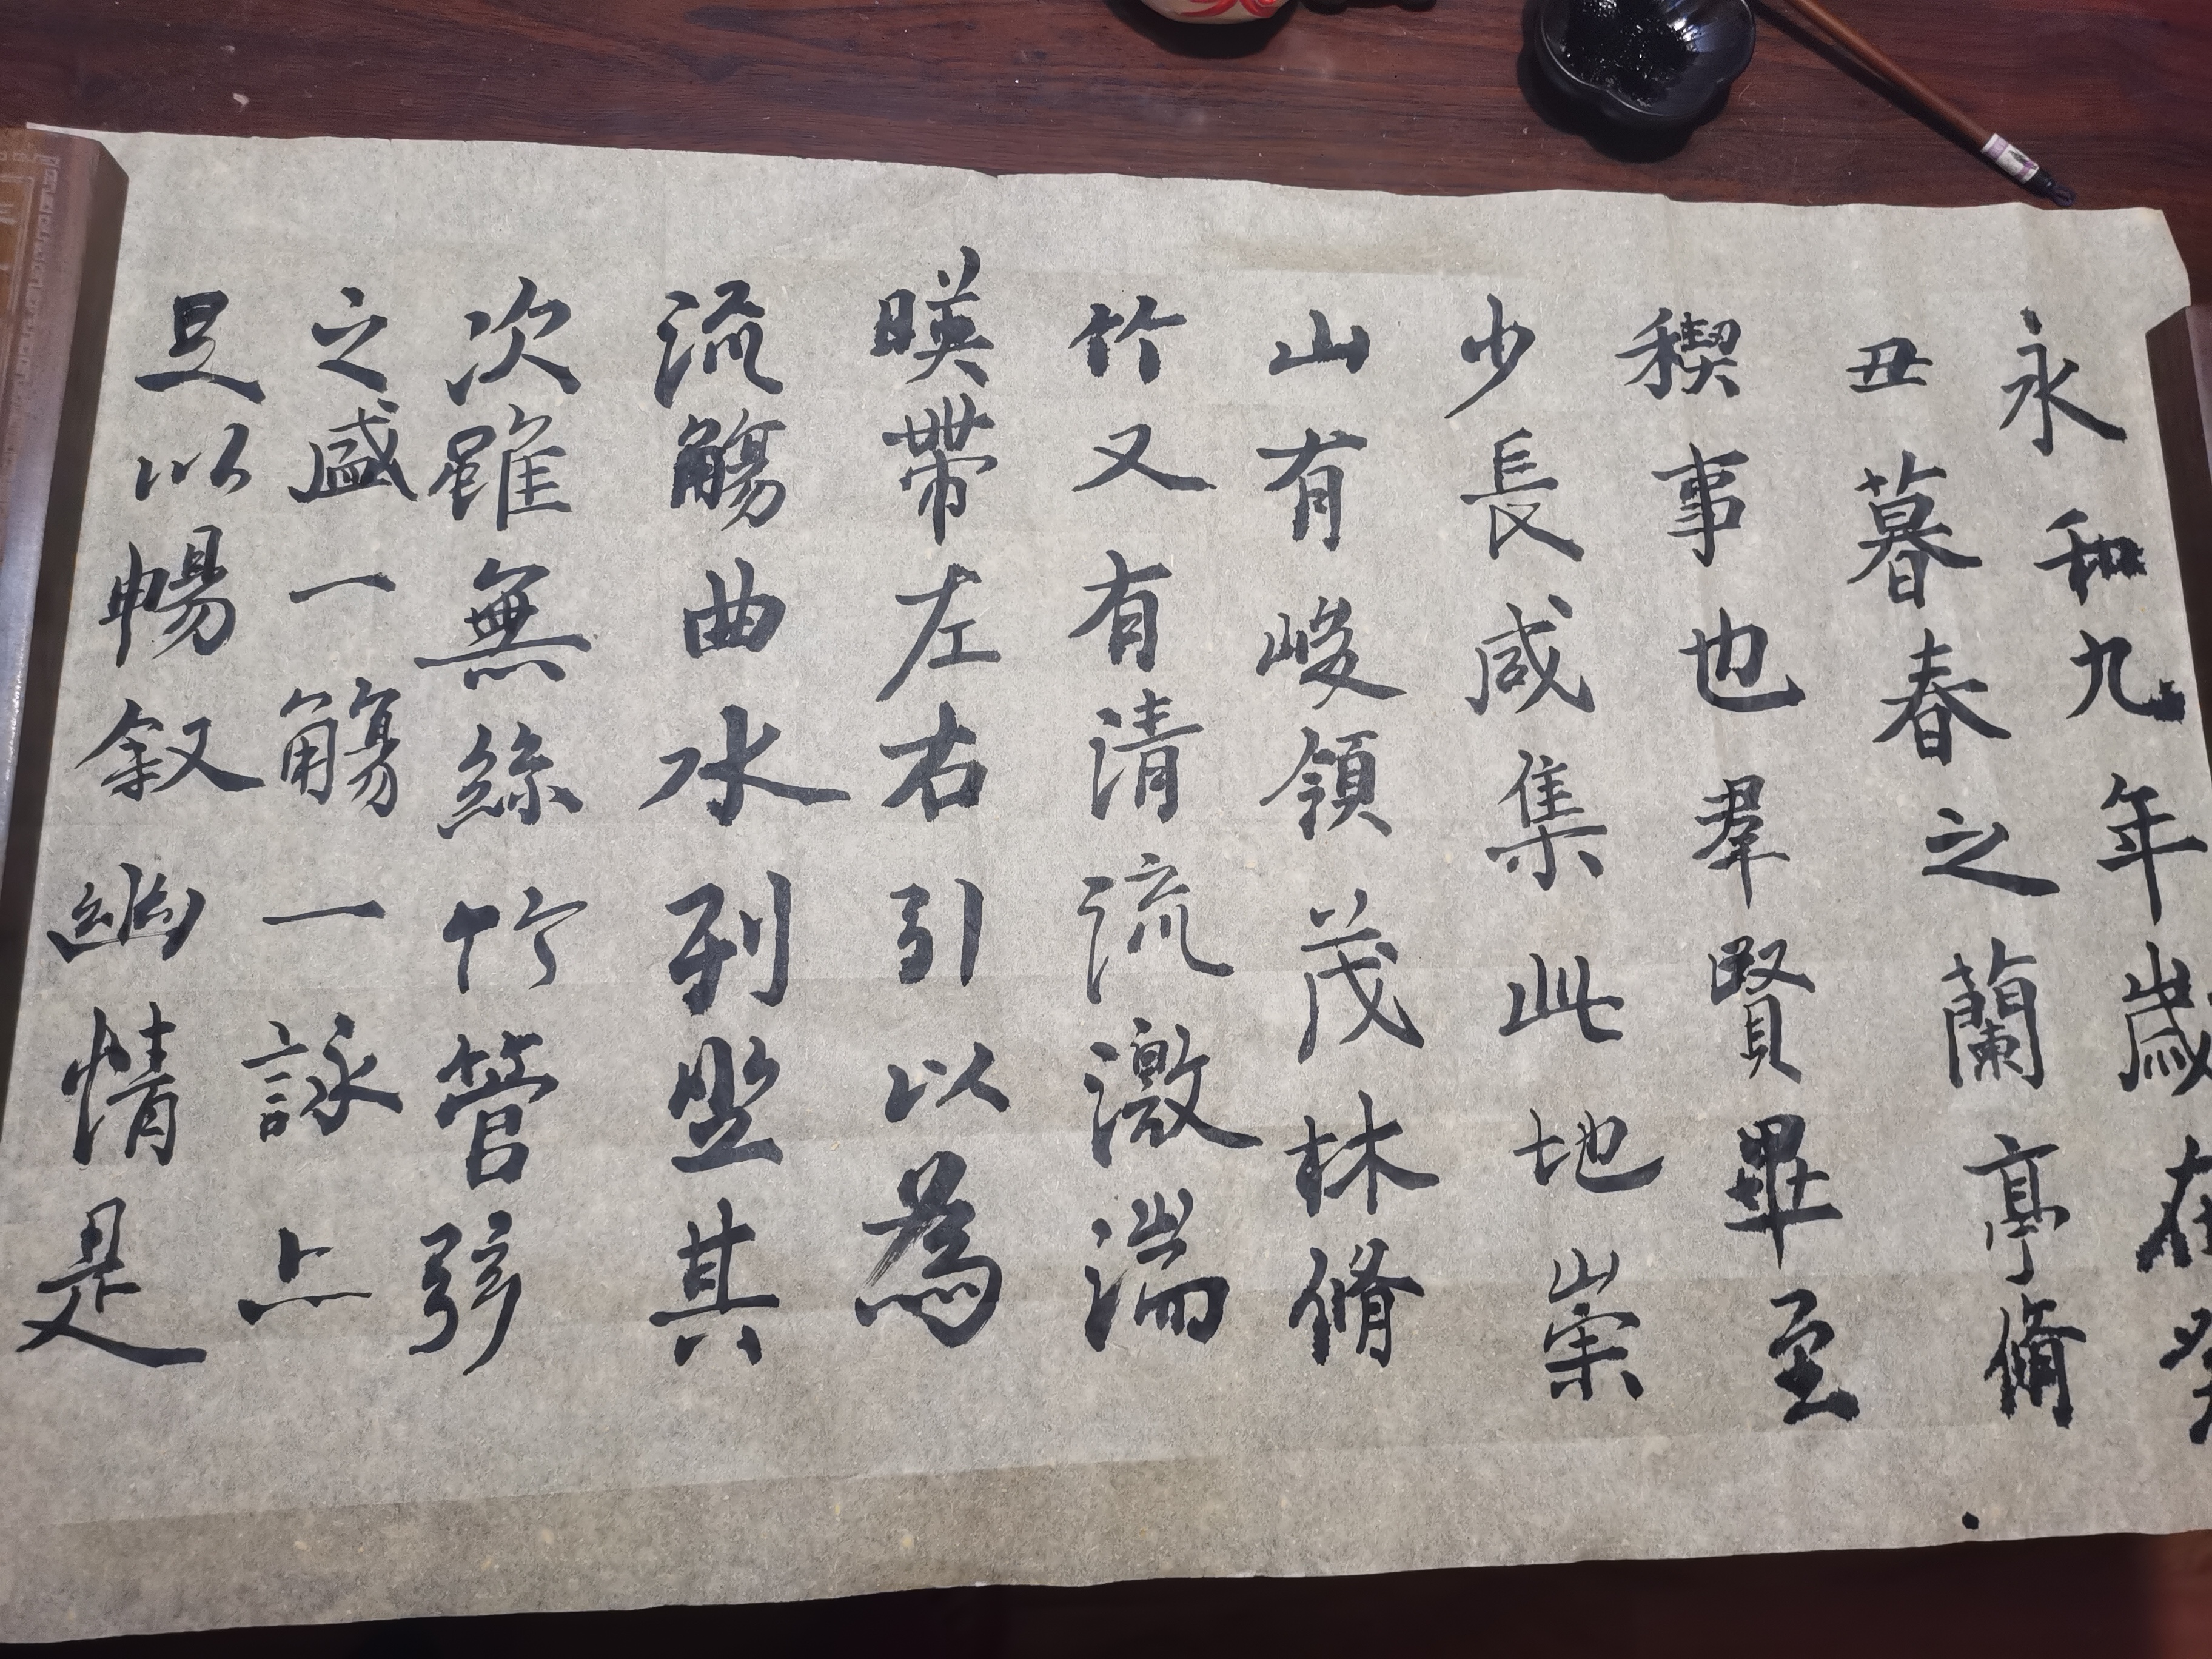 永和九年歲在癸
丑暮春之蘭亭脩
稧事也羣賢畢至
少長咸集此地崇
山有峻領茂林脩
竹又有清流激湍
暎帶左右引以為
流觴曲水列坐其
次雖無絲竹管弦
之盛一觴一詠亦
足以暢叙幽情是